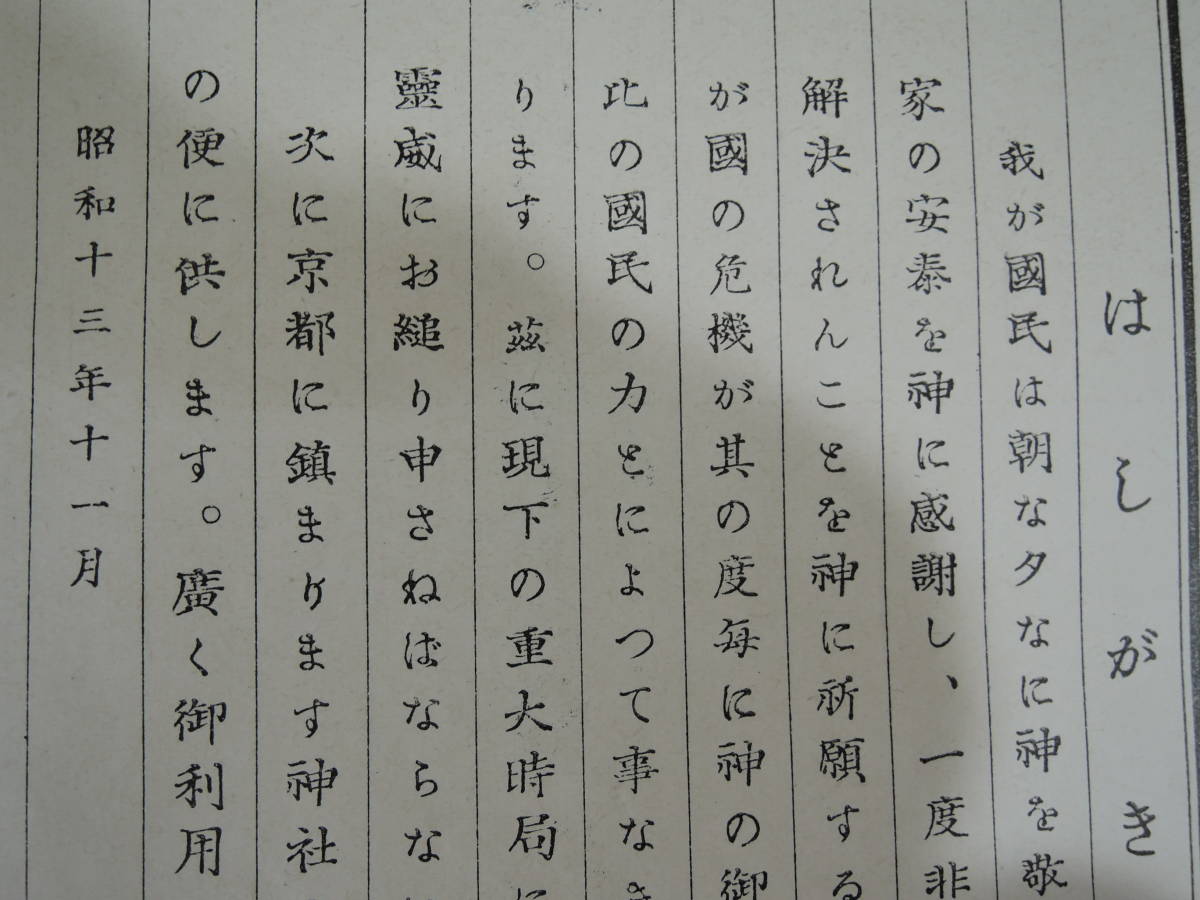 はしがき
我が國民は朝な夕なに神を敬
家の安泰を神に感謝し、一度非
解決されんことを神に祈願する
が國の危機が其の度毎に神の御
此の國民の力とによつて事なき
ります。茲に現下の重大時局に
靈威にお縋り申さねばならな
次に京都に鎮まります神社
の便に供します。廣く御利用
昭和十三年十一月